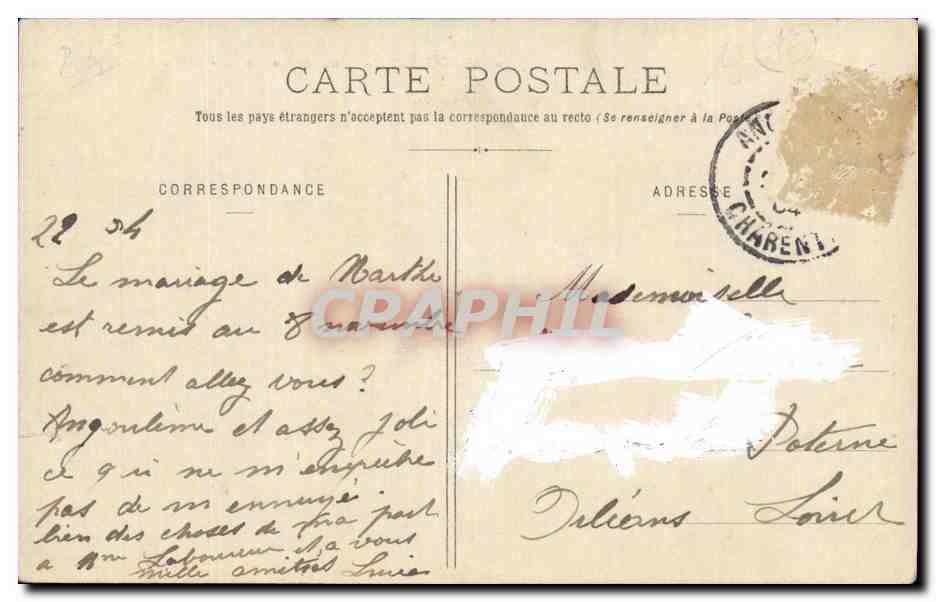 CARTE POSTALE
Tous les pays étrangers n'acceptent pas la correspondance au recto (Se renseigner à la Poste)
CORRESPONDANCE
ADRESSE
ANG
04
CHARENT
22 04
Le mariage de Marthe
est remis au 8 novembre
comment allez vous?
Angoulême et assez joli
ce qui ne m'empêche
pas de m'ennuyé.
bien des choses de ma part
a Mme et a vous
mille amitiés
Mademoiselle
Poterne
Orléans Loiret
CPAPHIL